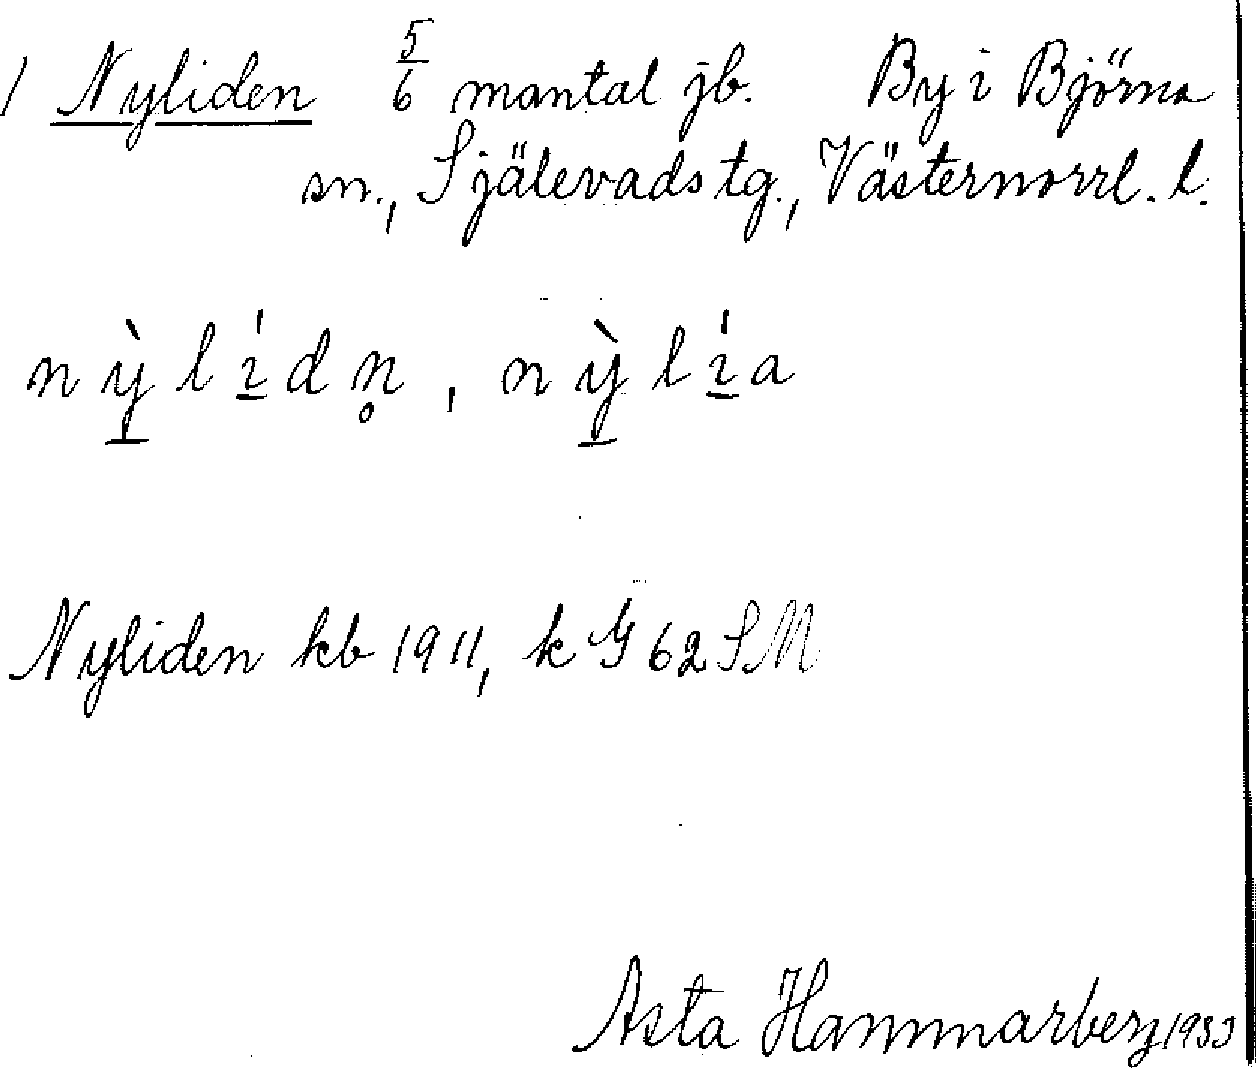 1 Nyliden 5/6 mantal jb. By i Björna
sn., Själevads tg., Västernorrl. l.
nỳ̲lí̲dn̥, nỳ̲lí̲a
Nyliden kb 1911, k G 62 SM
Asta Hammarberg